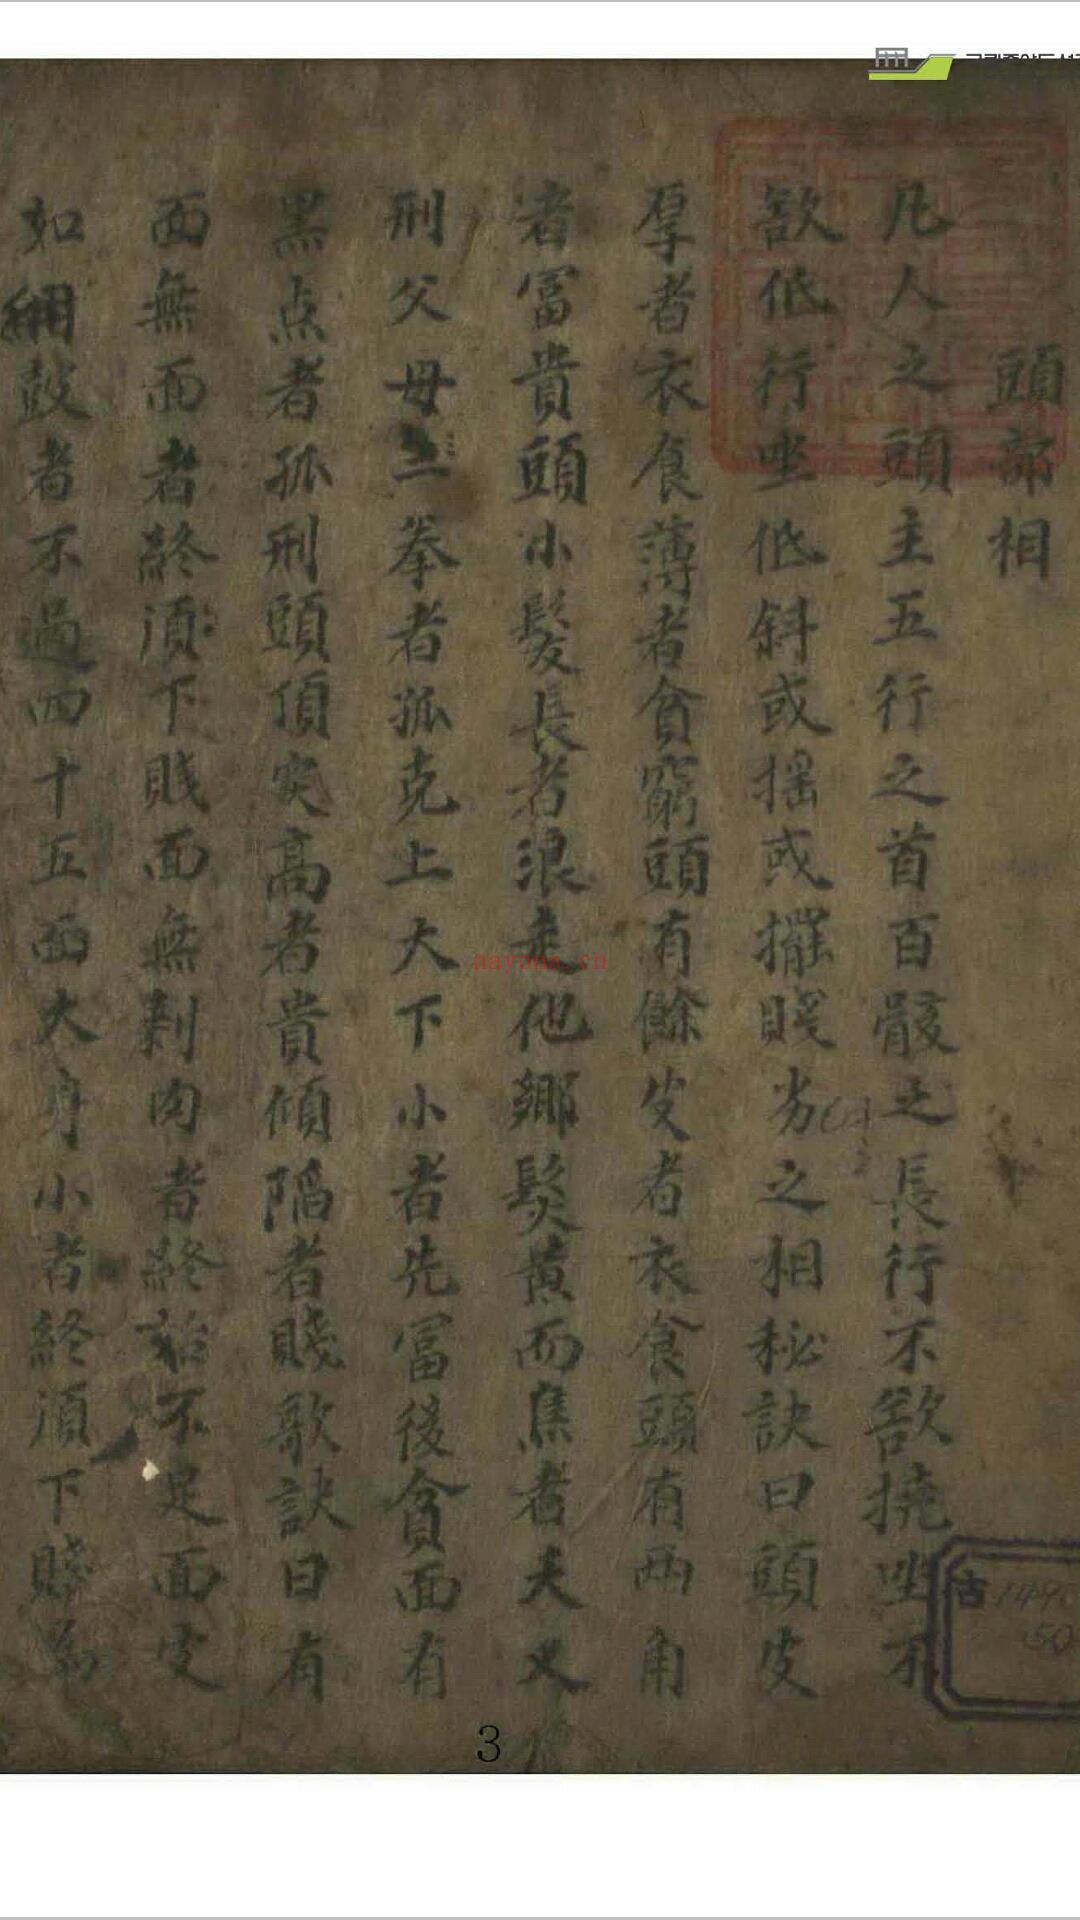 頭部相
凡人之頭主五行之首百骸之長行不欲撓坐不
欲低行坐低斜或搖或擺賤劣之相秘訣曰頭皮
厚者衣食薄者貧窮頭有餘皮者衣食頭有兩角
者冨貴頭小髮長者浪走他鄉髮黄而焦者夫又
刑父母二拳者孤克上大下小者先冨後貧面有
黑点者孤刑頭頂突高者貴傾陷者賤歌訣曰有
面無面者終須下賎面無剩肉者終始不足面皮
如綳鼓者不過四十五面大身小者終須下賤為
3
古